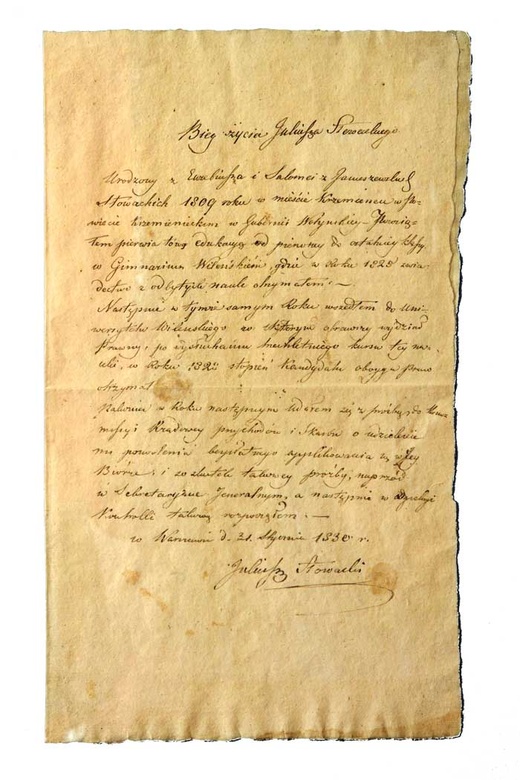 Bieg życia Juliusza Słowackiego
Urodzony z Euzebiusza i Salomei z Januszewskich
Słowackich 1809 roku w mieście Krzemieńcu w Po-
wiecie Krzemienieckim w Gubernii Wołyńskiey
pierwia edukacyą od pierwszey do ostatniey klassy
w Gimnazium Wileńskiém, gdzie w Roku 1825 świa
dectwo z odbytych nauk otrzymałem. —
Następnie w tymże samym Roku wszedłem do Uni-
wersytetu Wileńskiego w którym obrawszy wydział
Prawny, po wysłuchaniu trzechletniego kursu tey na-
uki, w Roku stopień Kandydata oboyga praw
otrzymał
w Roku następnym udałem się z prośbą do Kom
missyi Rządowey przychodów i Skarbu o udzielenie
mi pozwolenia bezpłatnego applikowania się w Jey
Biórze: i ze skutek takowey prośby, naprzód
w Sekretaryacie Jeneralnym, a następnie w
Kontrolli takową rozpocząłem. —
w Warszawie d. 21. Stycznia 1830 r.
Juliusz Słowacki